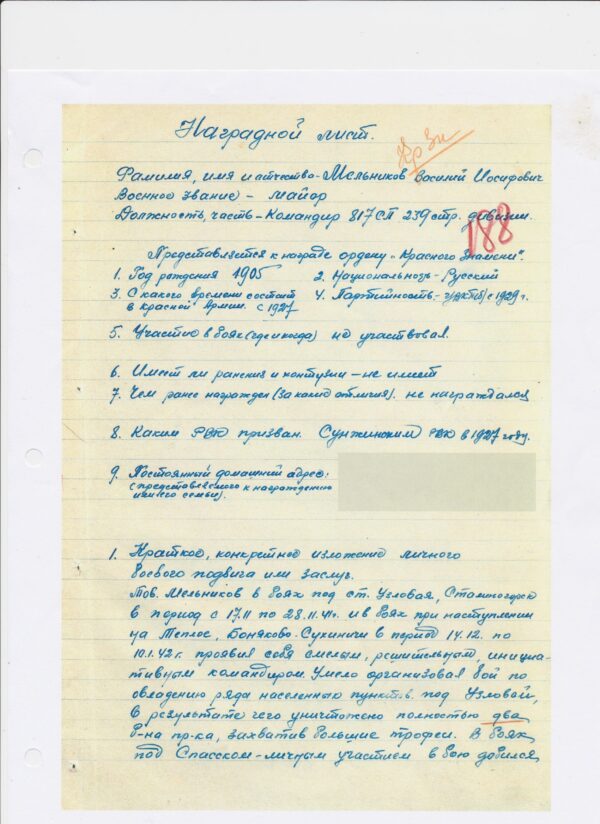 Наградной лист.
Кр Зн
Фамилия, имя и отчество - Мельников Василий Иосифович
Военное звание - майор
Должность, часть - Командир 817 СП 239 стр. дивизии.
188
Представляется к награде ордену "Красного Знамени".
1. Год рождения 1905 2. Национальность - Русский
3. С какого времени состоит 4. Партийность - с 1929 г.
в Красной Армии. с 1927
5. Участие в боях (где и когда) не участвовал.
6. Имеет ли ранения и контузии - не имеет
7. Чем ранее награжден (за какие отличия). не награждался
8. Каким РВК призван. Сунженским РВК в 1927 году.
9. Постоянный домашний адрес:
(представляемого к награждению
или его семьи).
1. Краткое, конкретное изложение личного
боевого подвига или заслуг.
Тов. Мельников в боях под ст. Узловая, Сталиногорск
в период с 17.11 по 28.11.41г. и в боях при наступлении
на Теплое, Сухиничи в период 14.12. по
10.1.42 г. проявил себя смелым, решительным, инициа-
тивным командиром. Умело организовал бой по
овладению ряда населенных пунктов под Узловой,
в результате чего уничтожено полностью два
б-на пр-ка, захватив большие трофеи. В боях
под Спасском - личным участием в бою добился